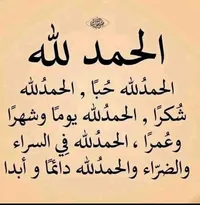 الحمد لله
الحمدُلله حُبًا , الحمدُلله
شُكرًا , الحمدُلله يومًا وشهرًا
وعُمرًا , الحمدُلله في السراء
والضرّاء والحمدُلله دائمًا و أبدا